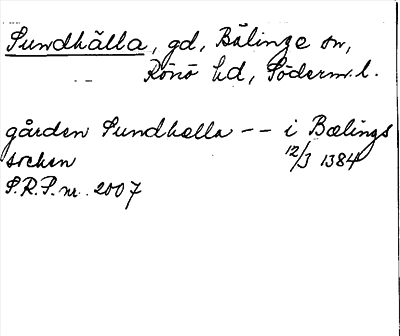 Sundhälla, gd, Bälinge sn,
Rönö hd, Söderm.l.
gården Sundhella -- i Bælings
sochen 12/3 1384
S.R.P. nr. 2007